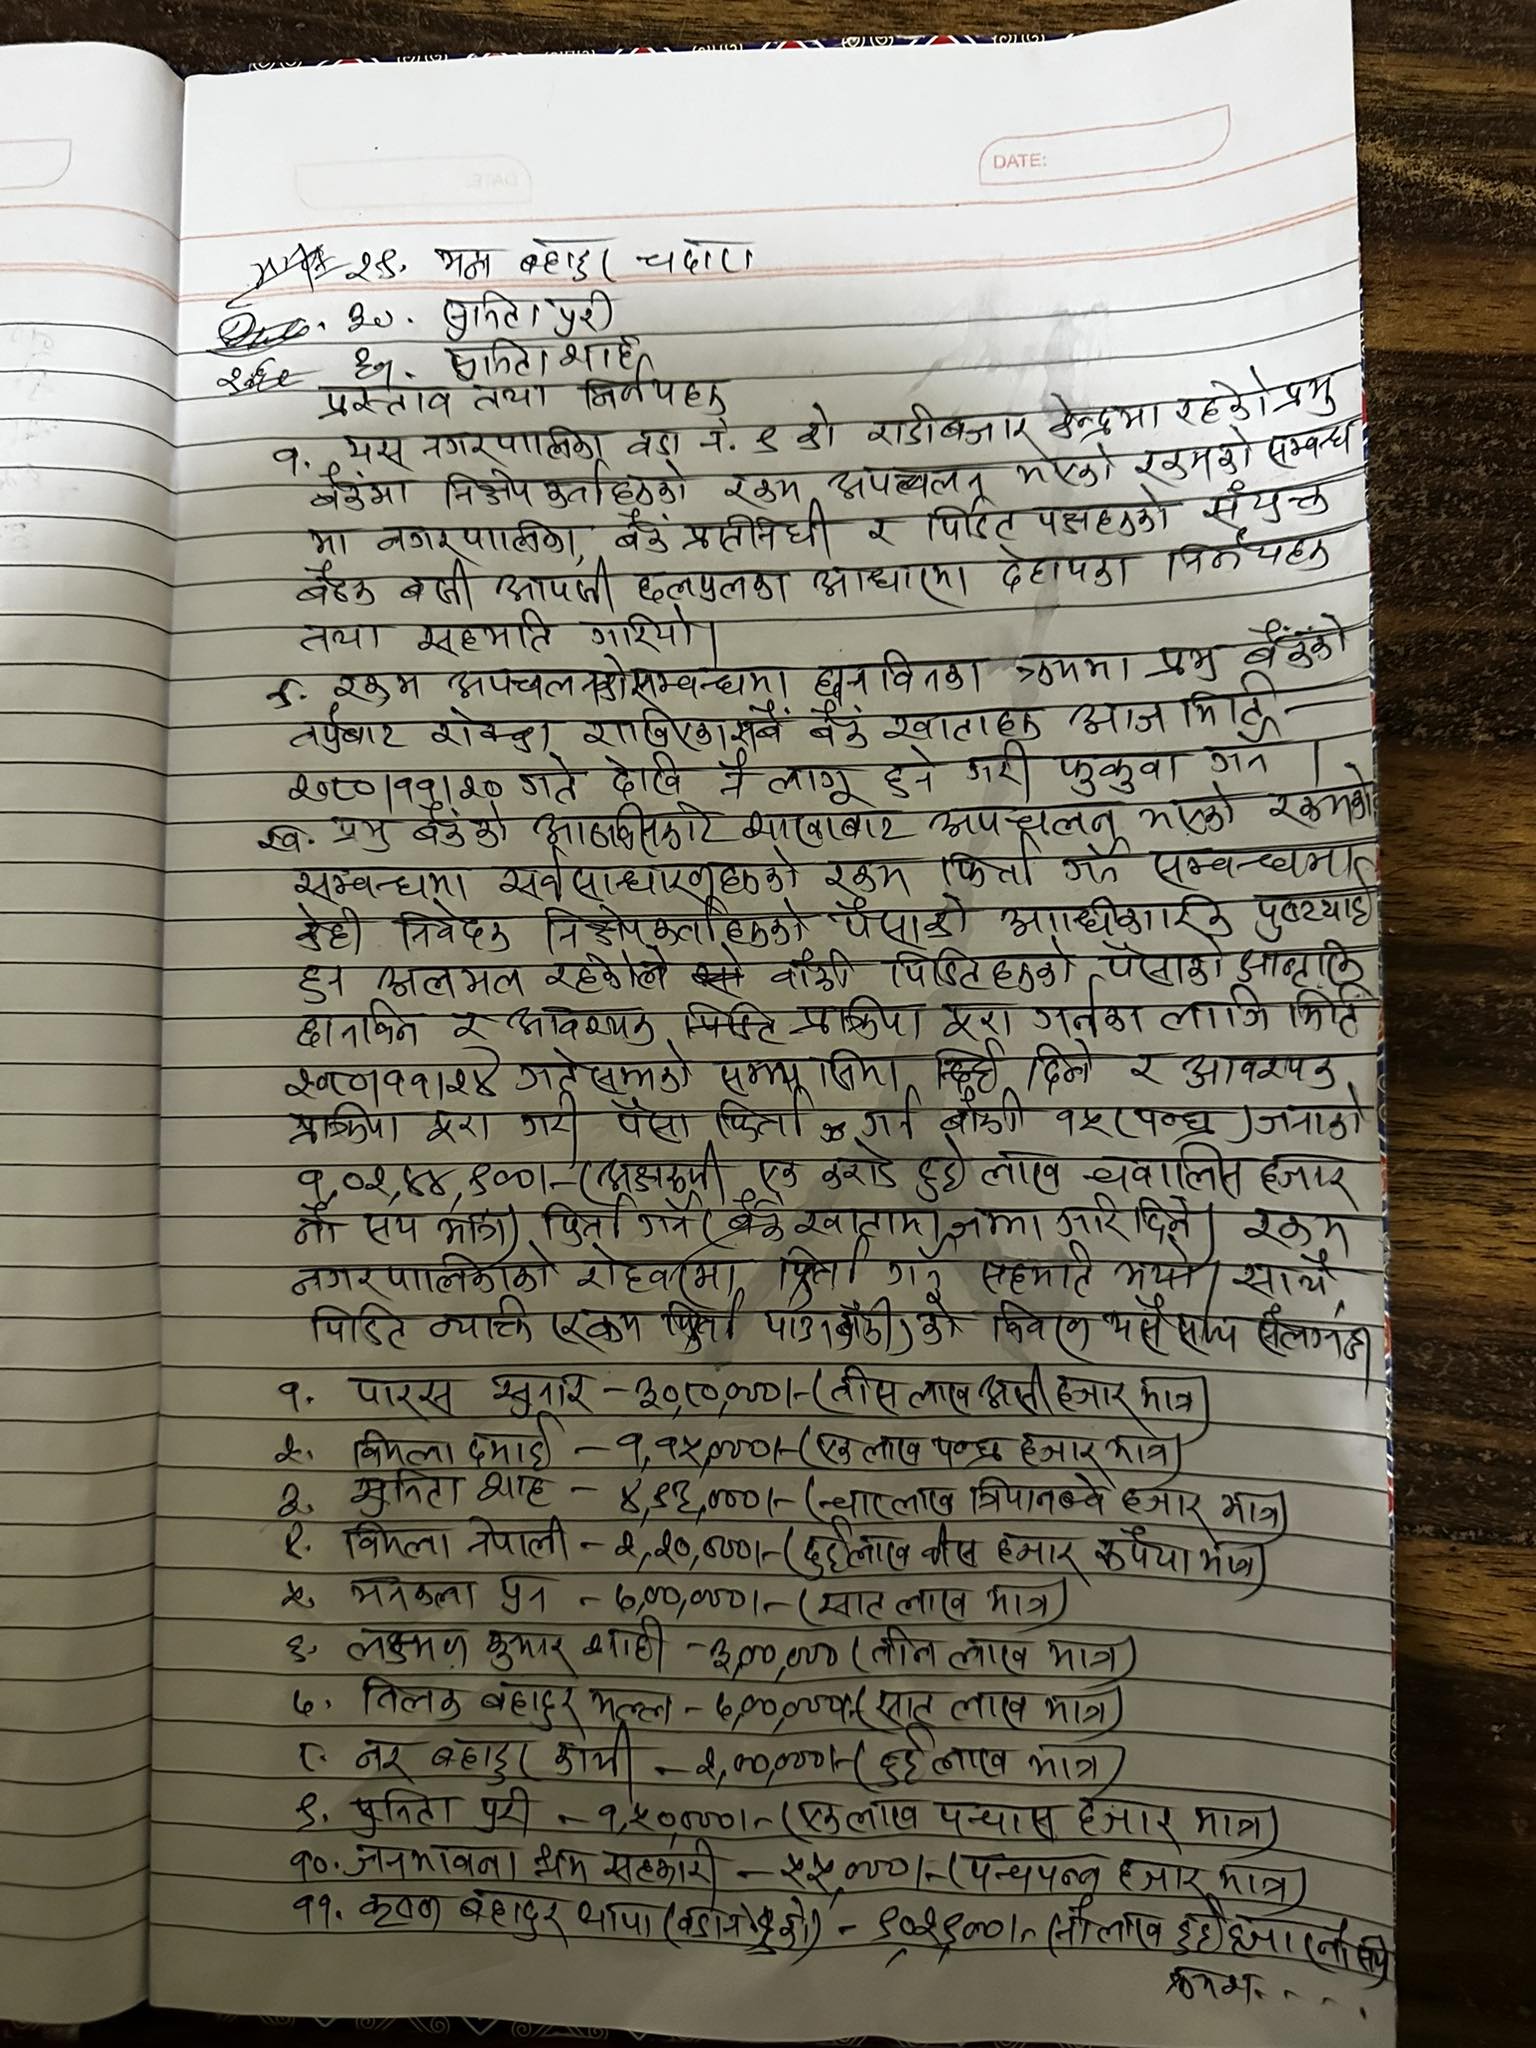 DATE:
२९. मन बहादुर चदारा
३०. सुनिता पुरी
३१. सुनिता शाह
प्रस्ताव तथा निर्णयहरु
१. यस नगरपालिका वडा नं. ९ को राडीबजार केन्द्रमा रहेको प्रभु
बैंकमा निक्षेपकर्ताहरुको रकम अपचलन भएको रकमको सम्बन्ध
मा नगरपालिका, बैंक प्रतिनिधी र पिडित पक्षहरुको संयुक्त
बैठक बसी आपसी छलफलका आधारमा देहायका निर्णयहरु
तथा सहमति गरियो।
क. रकम अपचलनको सम्बन्धमा छानविनका क्रममा प्रभु बैंकको
तर्फबाट रोक्का राखिएका सबै बैंक खाताहरु आज मिति
२०८०।११।२० गते देखि नै लागू हुने गरी फुकुवा गर्न।
ख. प्रभु बैंकको आठबिसकोट शाखाबाट अपचलन भएको रकमको
सम्बन्धमा सर्वसाधारणहरुको रकम फिर्ता गर्ने सम्बन्धमा
केही निवेदक निक्षेपकर्ताहरुको पैसाको आधीकारिक पुष्टयाई
हुन अलमल रहेकोले बाँकी पिडितहरुको पैसाको आन्तरिक
छानविन र आवश्यक प्रक्रिया पूरा गर्नका लागि मिति
२०८०।११।२४ गतेसम्मको समय दिने र आवश्यक
प्रक्रिया पूरा गरी पैसा फिर्ता गर्न बाँकी १५ (पन्ध्र) जनाको
१,०२,४४,९००।- (अक्षरुपी एक करोड दुई लाख चवालिस हजार
नौ सय मात्र) फिर्ता गर्ने (बैंक खातामा जम्मा गरिदिने) रकम
नगरपालिकाको रोहवरमा फिर्ता गर्न सहमति भयो। साथै
पिडित व्याक्ति (रकम फिर्ता पाउन बाँकी) को विवरण यसै साथ संलग्न छ।
१. पारस सुनार - ३०,८०,०००।- (तीस लाख असी हजार मात्र)
२. विमला दमाई - १,१५,०००।- (एक लाख पन्ध्र हजार मात्र)
३. सुनिता शाह - ४,९३,०००।- (चार लाख त्रिपानब्बे हजार मात्र)
४. विमला नेपाली - २,२०,०००।- (दुई लाख बीस हजार रुपैया मात्र)
५. मनकला पुन - ७,००,०००।- (सात लाख मात्र)
६. लक्ष्मण कुमार शाही - ३,००,००० (तीन लाख मात्र)
७. तिलक बहादुर मल्ल - ७,००,०००।- (सात लाख मात्र)
८. नर बहादुर कामी - २,००,०००।- (दुई लाख मात्र)
९. सुनिता पुरी - १,५०,०००।- (एक लाख पचास हजार मात्र)
१०. जनभावना श्रम सहकारी - ५५,०००।- (पन्चपन्न हजार मात्र)
११. कृष्ण बहादुर थापा - ९,०२,९००।- (नौ लाख दुई हजार नौ सय
क्रमश....